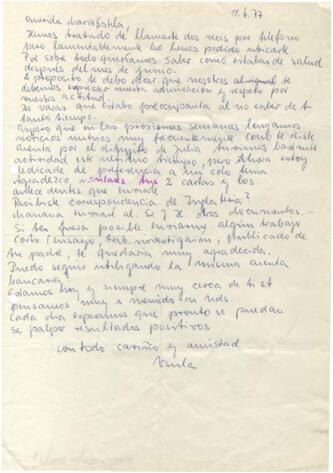 11.6.77
Querida María Estela
Hemos tratado de llamarte dos veces por teléfono
pero lamentablemente no hemos podido ubicarte
Por sobre todo queríamos saber como estabas de salud
después del mes de junio.
A propósito te debo decir que nosotros al igual te
debemos expresar nuestra admiración y respeto por
vuestra actitud.
Ya veras que estaba preocupanta al no saber de ti
tanto tiempo.
Espero que en las próximas semanas tengamos
noticias mutuas muy frecuentemente como te diste
cuenta por el dibujito de Julia tuvimos bastante
actividad este ultimo tiempo, pero ahora estoy
dedicada de preferencia a un solo tema
Agradezco tus 2 cartas y los
antecedentes que enviaste.
Recibiste correspondencia de Inglaterra?
Mañana enviaré al Sr J. H. otros documentos.-
Si te fuera posible enviarme algún trabajo
corto (ensayo, trab. investigación, publicado de
tu padre, te quedaría muy agradecida.
Puedo seguir utilizando la misma cuenta
bancaria?
Estamos hoy y siempre muy cerca de ti et
pensamos muy a menudo en uds.
Cada día esperamos que pronto se puedan
se palpar resultados positivos
con todo cariño y amistad